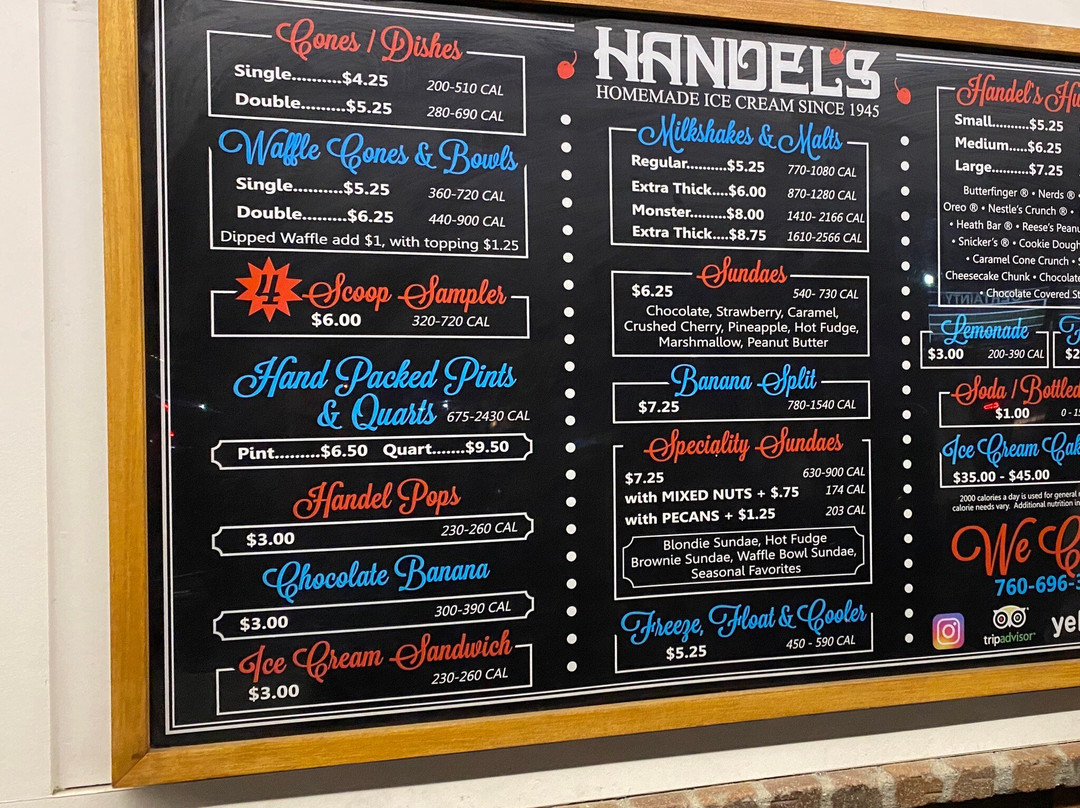 Cones / Dishes
Single..........$4.25 200-510 CAL
Double.........$5.25 280-690 CAL
Waffle Cones & Bowls
Single..........$5.25 360-720 CAL
Double.........$6.25 440-900 CAL
Dipped Waffle add $1, with topping $1.25
4 Scoop Sampler
$6.00 320-720 CAL
Hand Packed Pints
& Quarts 675-2430 CAL
Pint.........$6.50 Quart.......$9.50
Handel Pops
$3.00 230-260 CAL
Chocolate Banana
$3.00 300-390 CAL
Ice Cream Sandwich
$3.00 230-260 CAL
HANDEL'S
HOMEMADE ICE CREAM SINCE 1945
Milkshakes & Malts
Regular.........$5.25 770-1080 CAL
Extra Thick....$6.00 870-1280 CAL
Monster.........$8.00 1410- 2166 CAL
Extra Thick....$8.75 1610-2566 CAL
Sundaes
$6.25 540- 730 CAL
Chocolate, Strawberry, Caramel,
Crushed Cherry, Pineapple, Hot Fudge,
Marshmallow, Peanut Butter
Banana Split
$7.25 780-1540 CAL
Speciality Sundaes
$7.25 630-900 CAL
with MIXED NUTS + $.75 174 CAL
with PECANS + $1.25 203 CAL
Blondie Sundae, Hot Fudge
Brownie Sundae, Waffle Bowl Sundae,
Seasonal Favorites
Freeze, Float & Cooler
$5.25 450 - 590 CAL
Handel's
Small..........$5.25
Medium.....$6.25
Large..........$7.25
Butterfinger ® • Nerds ®
Oreo ® • Nestle's Crunch ® •
• Heath Bar ® • Reese's
• Snicker's ® • Cookie
• Caramel Cone Crunch •
Cheesecake Chunk •
• Chocolate Covered
Lemonade
$3.00 200-390 CAL
Soda /
$1.00
Ice Cream
$35.00 - $45.00
2000 calories a day is used for general
calorie needs vary. Additional nutrition
We
760-696-
tripadvisor